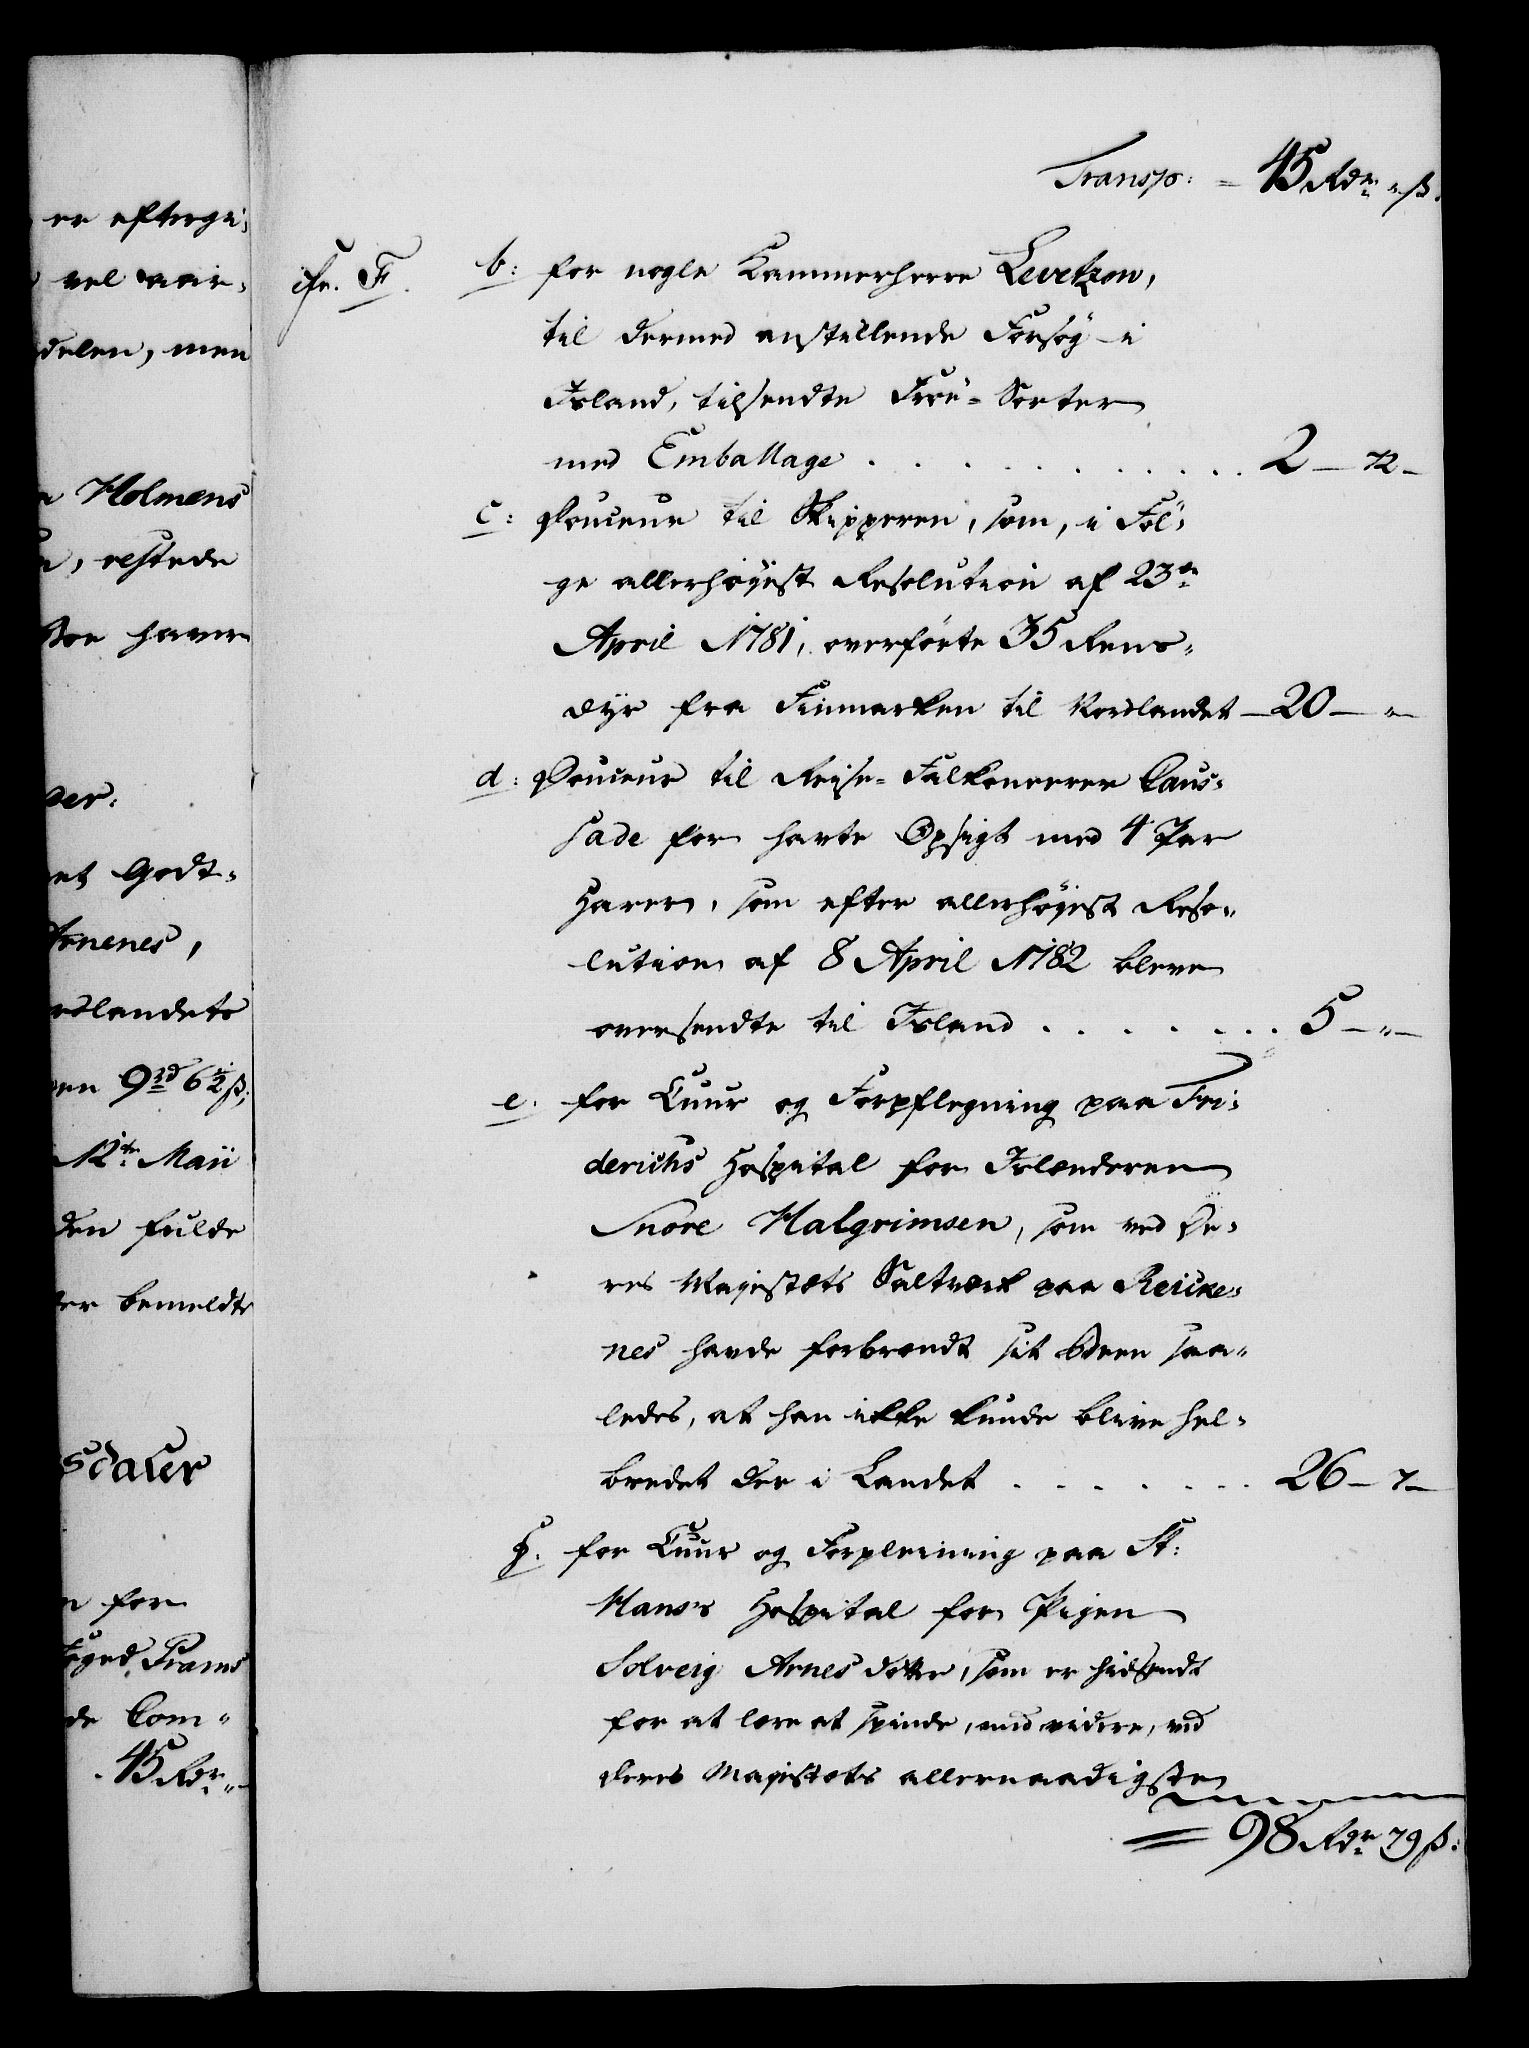 er eftergi¬
vel vær¬
delen, men
Holmens
, restede
Boe haver
per:
et Godt¬
tonenes,
rdlandets
en 9 rd 6½ ß;
12te Maii
den fulde
ter bemeldte
sdaler
for
foged Frams
de Com¬
45 Rdr „
Transp: = 45 Rdr „ ß.
cfr. F.
b: for nogle Kammerherre Levetzon,
til dermed anstillende Forsøg i
Island, tilsendte Frøe-Sorter
med Emballage . . . . . . . . . . 2 – 72 –
c: Douceur til Skipperen, som, i Føl¬
ge allerhøyest Resolution af 23de
April 1781, overførte 35 Rens¬
dyr fra Finmarken til Nordlandet – 20 – „ –
d: Douceur til Reyse-Falkonerer Caus¬
sade for havte Opsigt med 4 Par
Harer, som efter allerhøyest Reso¬
lution af 8 April 1782 bleve
oversendte til Island . . . . . . . 5 – „ –
e. for Cuur og Forpflegning paa Fri¬
derichs Hospital for Islænderen
Snore Halgrimsen, som ved De¬
res Majestæts Saltværk paa Reicke¬
nes havde forbrændt sit Been saa¬
ledes, at han ikke kunde blive hel¬
bredet der i Landet . . . . . . . 26 – 7 –
for Cuur og Forpleining paa St:
Hans's Hospital for Pigen
Solveig Arnes dotter, som er hidsendt
for at lære at spinde, med videre, ved
Deres Majestæts allernaadigste
= 98 Rdr 79 ß: